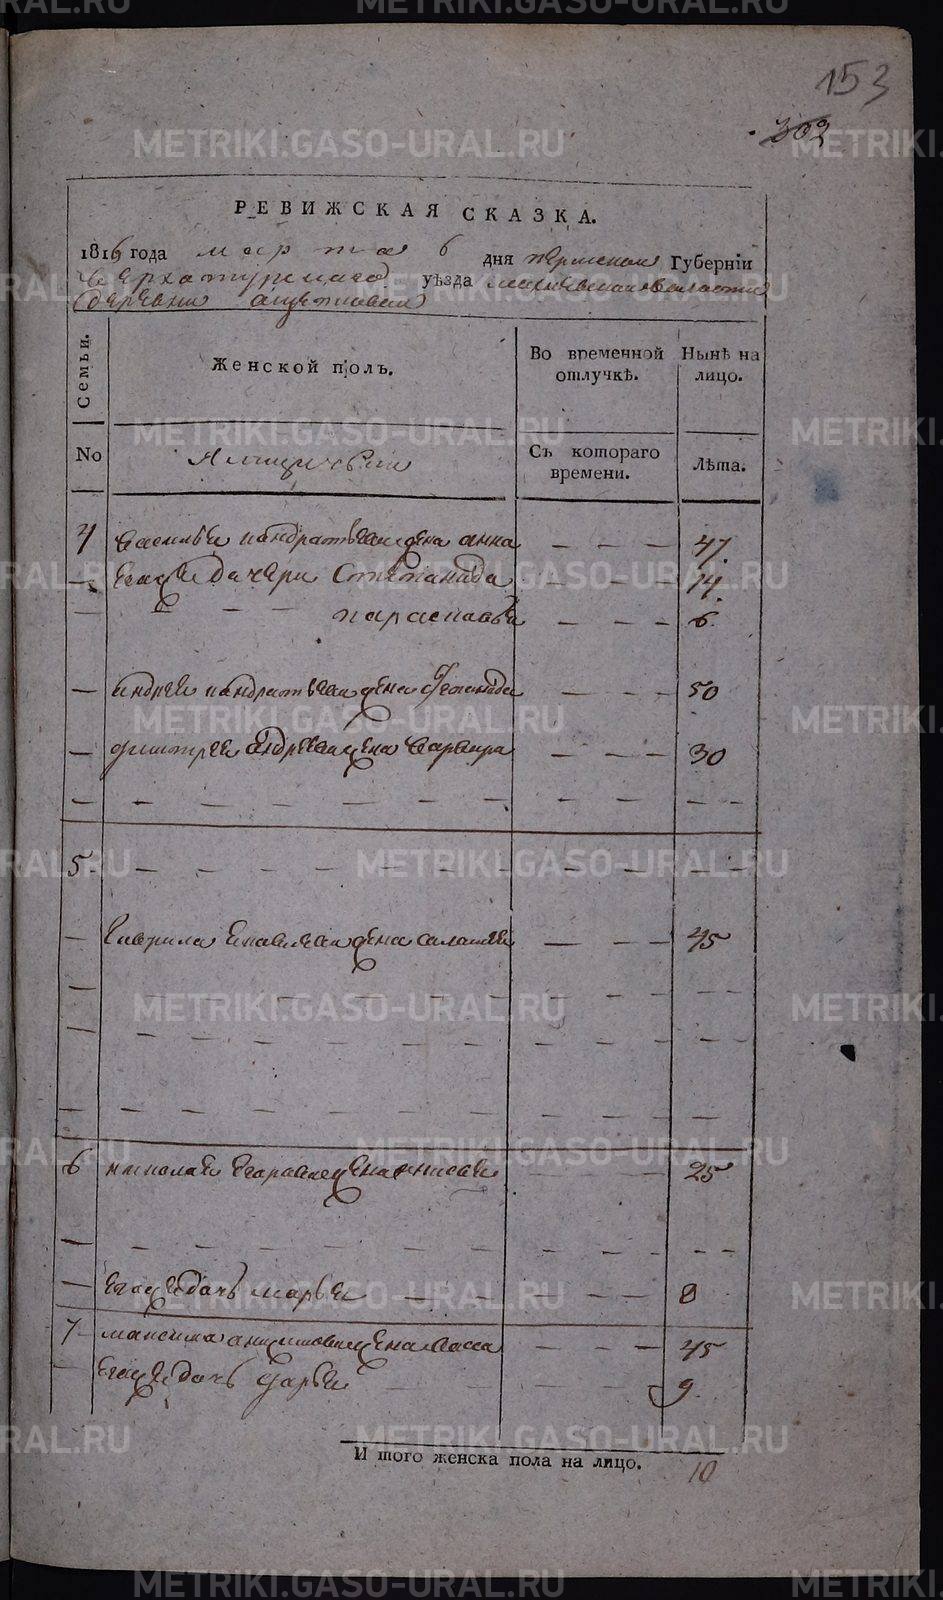 153
302
РЕВИЖСКАЯ СКАЗКА.
1816 года марта 6 дня Пермской Губерніи
Верхотурскаго уѣзда волости
деревни
Семьи.
Женской полъ.
Во временной отлучкѣ.
Нынѣ на лицо.
No
Ямщичьи
Съ котораго времени.
Лѣта.
4 василья кандратьева жена анна — — — 47
— Егоже дочери Степанида — — — 14
— — — — параскавья — — — 6
— андрея кандратьева жена — — — 50
— дмитрея андреева жена варвара — — — 30
5
— гаврила жена — — — 45
6 николая Егарова жена — — — 25
— Егожедочь марья — — — 8
7 максима жена васса — — — 45
— Егожедочь дарья — — — 9
И того женска пола на лицо. 10
METRIKI.GASO-URAL.RU